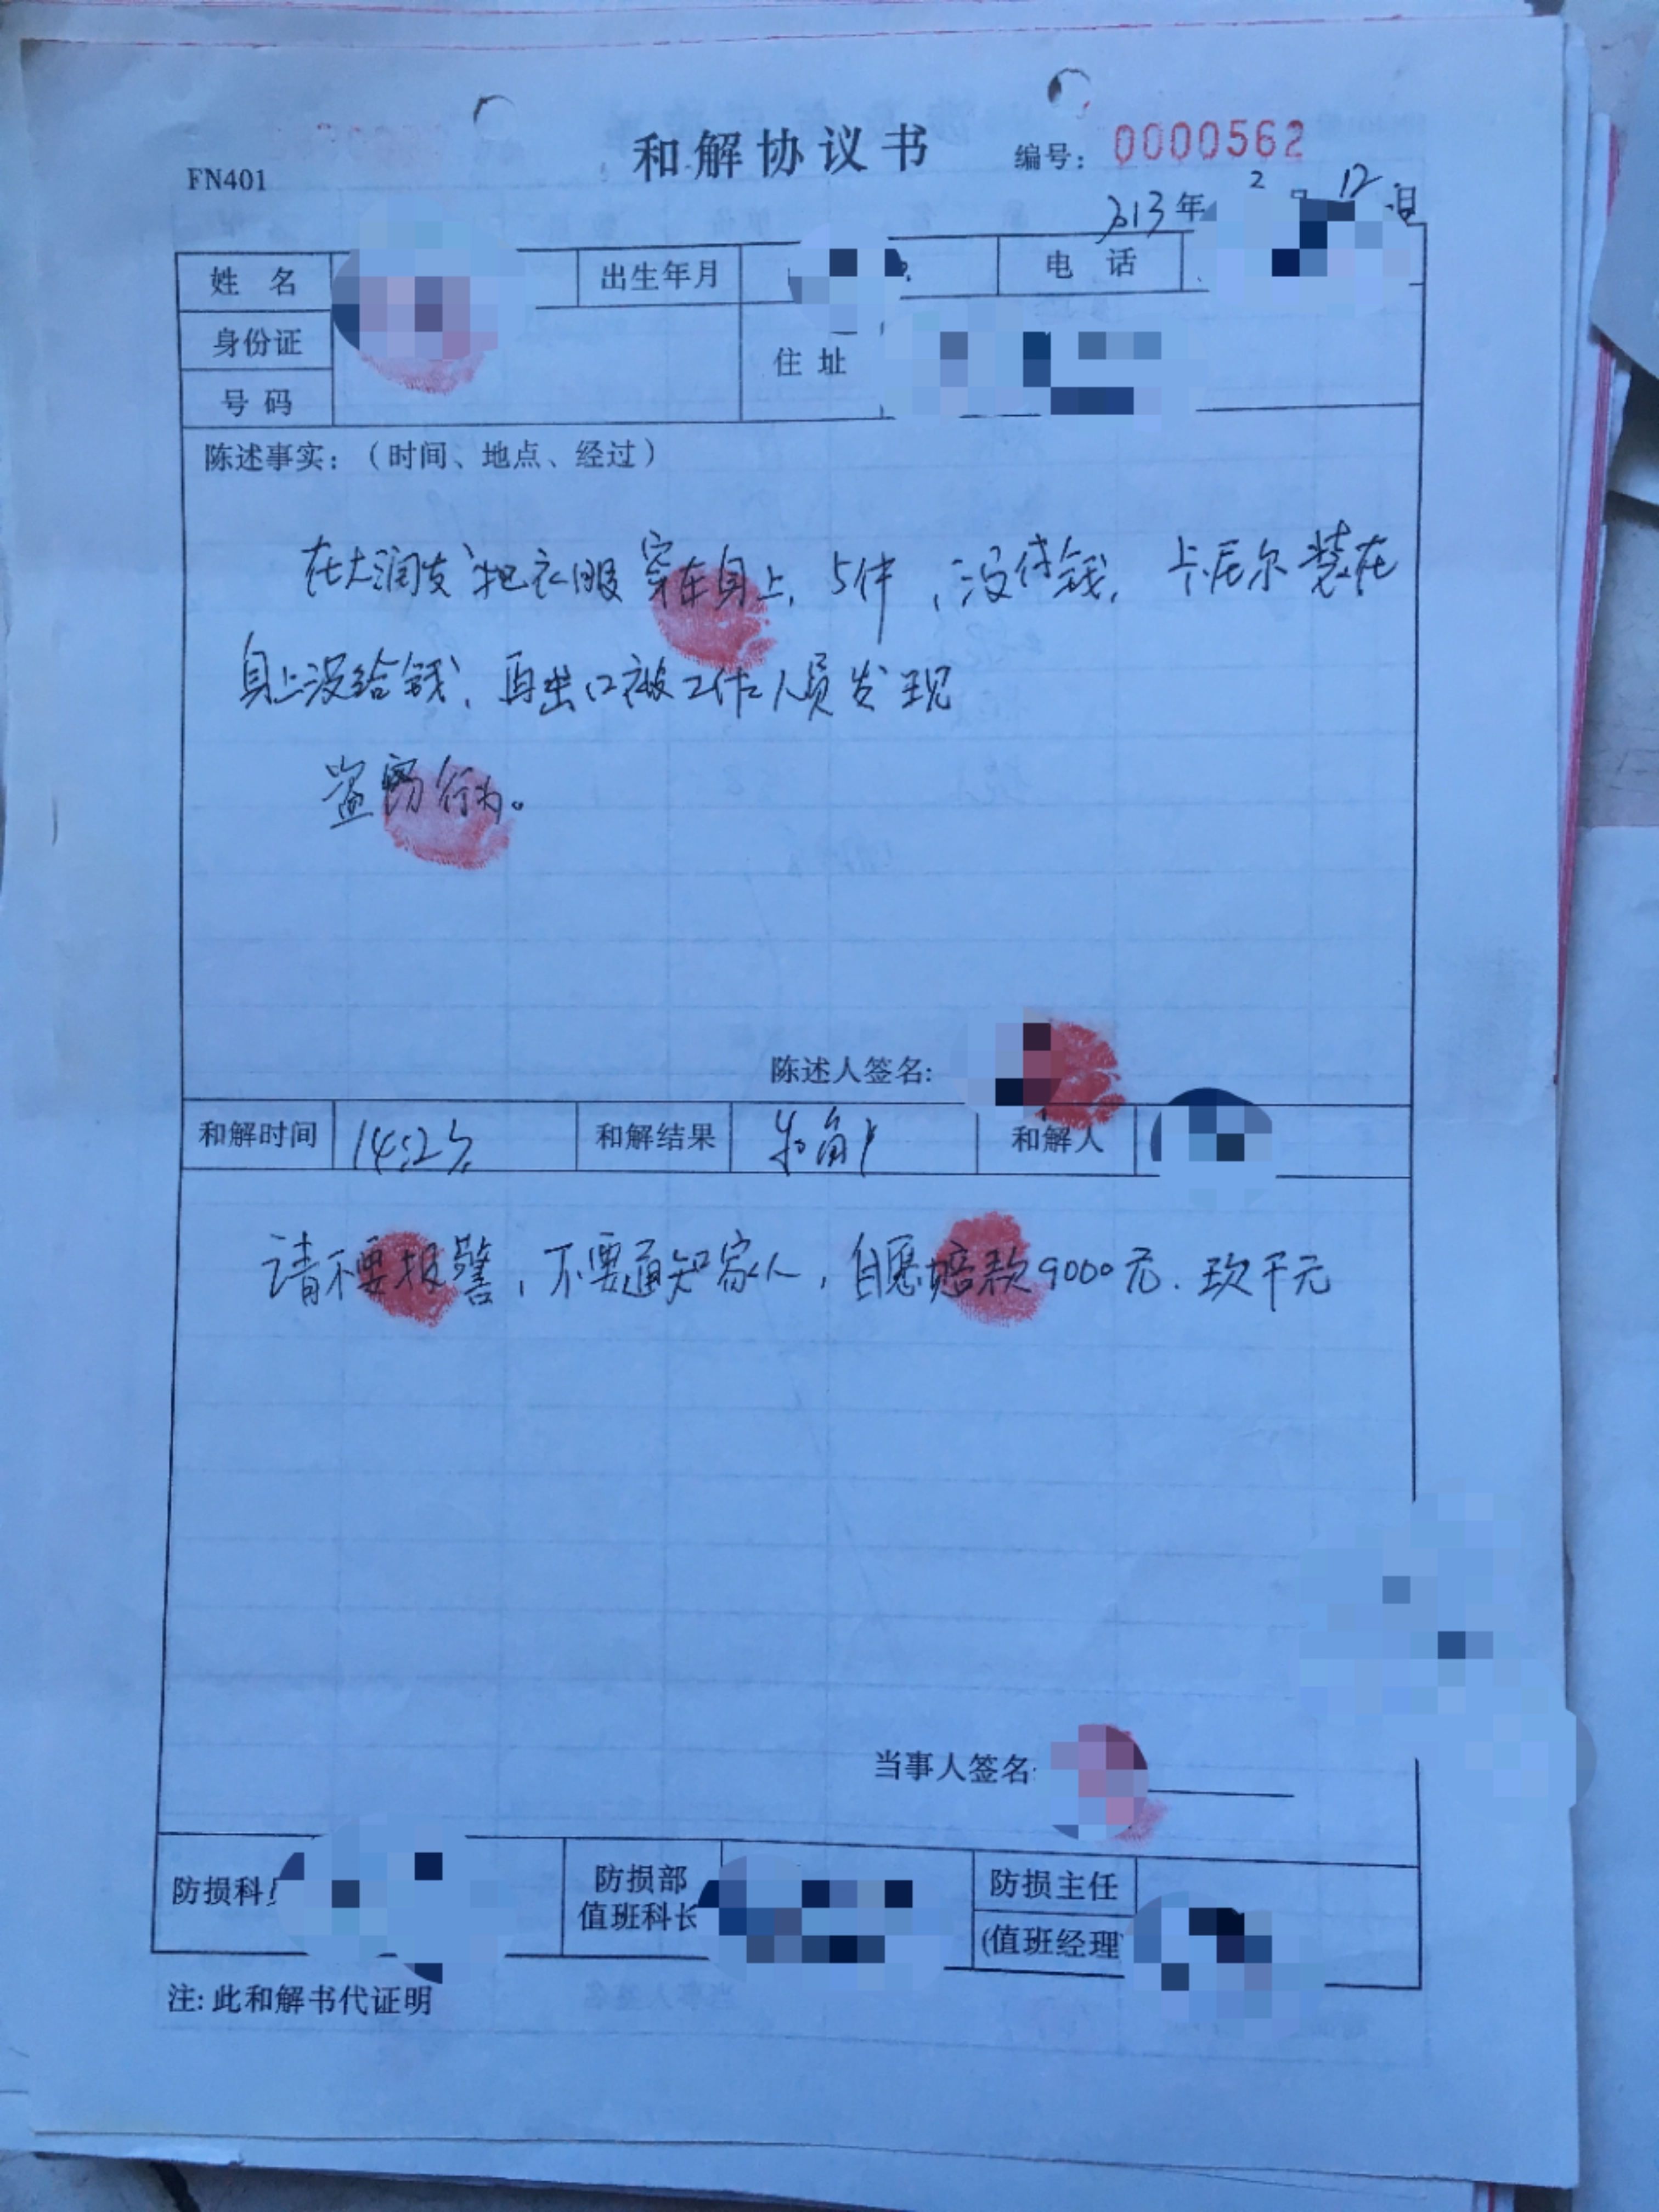 和解协议书
编号: 0000562
FN401
2013年 2月12日
姓名 出生年月 电话
身份证号码 住址
陈述事实:(时间、地点、经过)
在大润发把衣服穿在身上,5件,没付钱,卡尼尔装在
身上没给钱,再出口被工作人员发现
盗窃行为。
陈述人签名:
和解时间 和解结果 和解人
请不要报警,不要通知家人,自愿赔款9000元.玖千元
当事人签名:
防损科员 防损部值班科长 防损主任(值班经理)
注:此和解书代证明